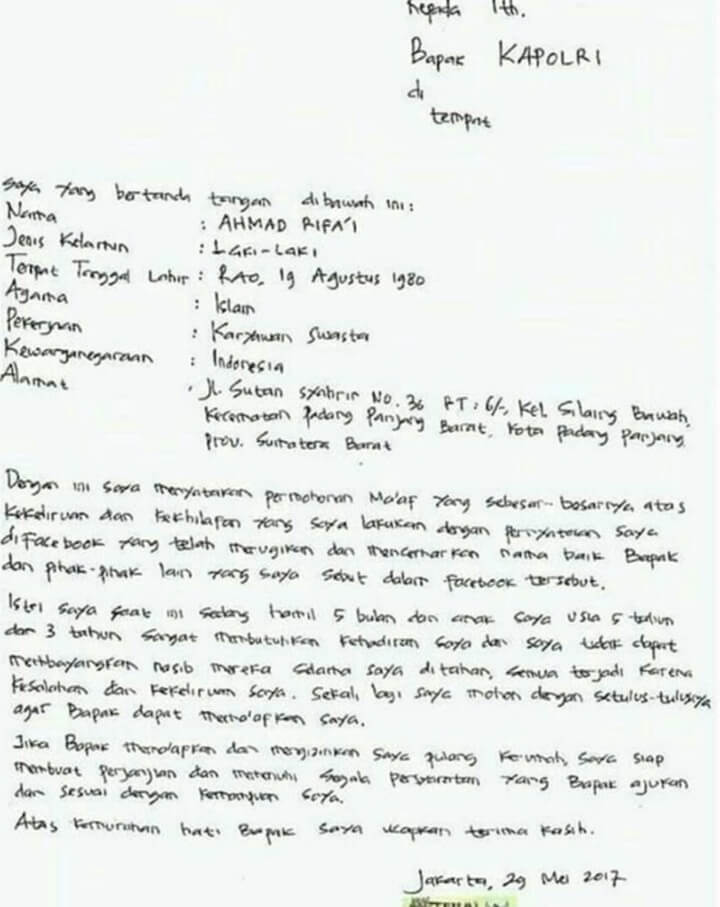 Kepada Yth.
Bapak KAPOLRI
di
tempat
Saya yang bertanda tangan dibawah ini:
Nama : AHMAD RIFA'I
Jenis Kelamin : LAKI-LAKI
Tempat Tanggal Lahir : RAO, 19 Agustus 1980
Agama : Islam
Pekerjaan : Karyawan Swasta
Kewarganegaraan : Indonesia
Alamat : Jl. Sutan Syahrir No. 36 RT : 6/-, Kel. Silaing Bawah,
Kecamatan Padang Panjang Barat, Kota Padang Panjang
Prov. Sumatera Barat
Dengan ini saya menyatakan permohonan Ma'af yang sebesar-besarnya atas
kekeliruan dan kekhilafan yang saya lakukan dengan pernyataan saya
di Facebook yang telah merugikan dan mencemarkan nama baik Bapak
dan pihak-pihak lain yang saya sebut dalam facebook tersebut.
Istri saya saat ini sedang hamil 5 bulan dan anak saya usia 5 tahun
dan 3 tahun sangat membutuhkan kehadiran saya dan saya tidak dapat
membayangkan nasib mereka selama saya ditahan, semua terjadi karena
kesalahan dan kekeliruan saya. Sekali lagi saya mohon dengan setulus-tulusnya
agar Bapak dapat mema'afkan saya.
Jika Bapak mema'afkan dan mengizinkan saya pulang kerumah, saya siap
membuat perjanjian dan memenuhi segala persyaratan yang Bapak ajukan
dan sesuai dengan kemampuan saya.
Atas kemurahan hati Bapak saya ucapkan terima kasih.
Jakarta, 29 Mei 2017